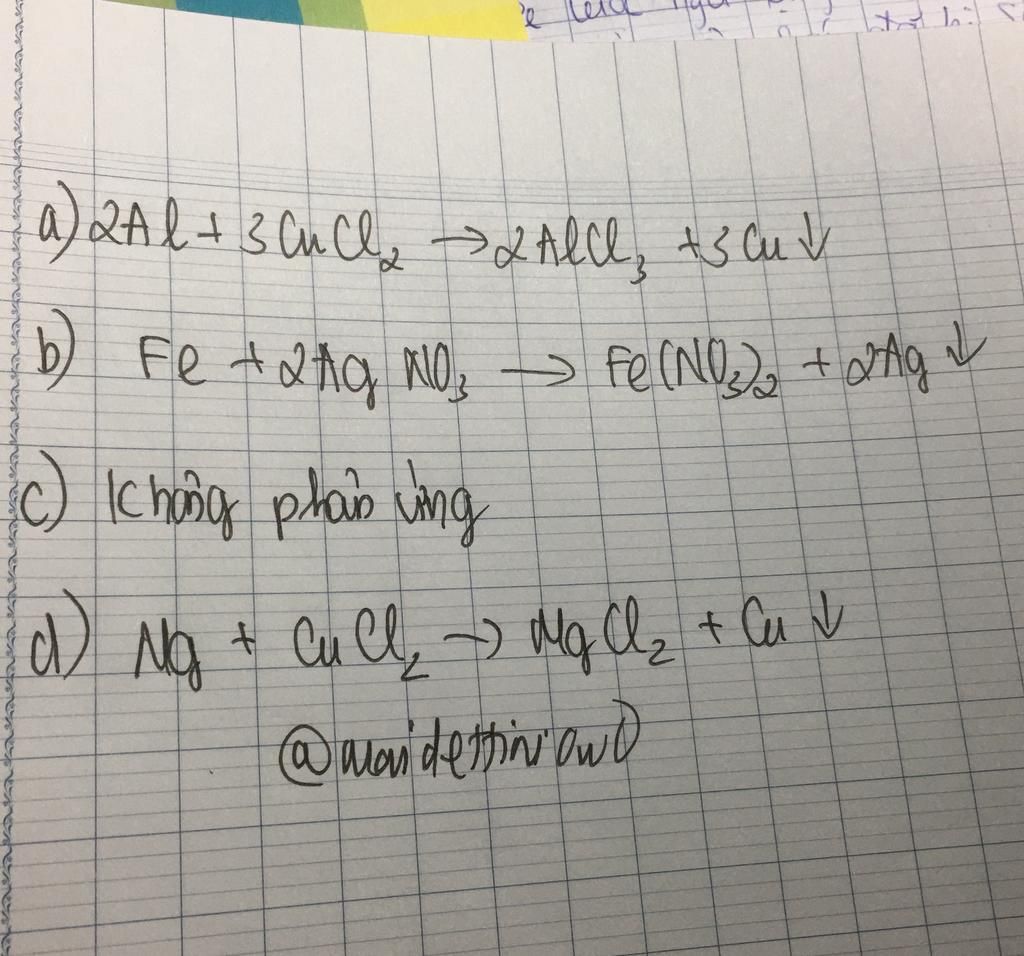 a) 2Al + 3CuCl₂ → 2AlCl₃ + 3Cu↓
b) Fe + 2AgNO₃ → Fe(NO₃)₂ + 2Ag↓
c) Không phản ứng
d) Mg + CuCl₂ → MgCl₂ + Cu↓